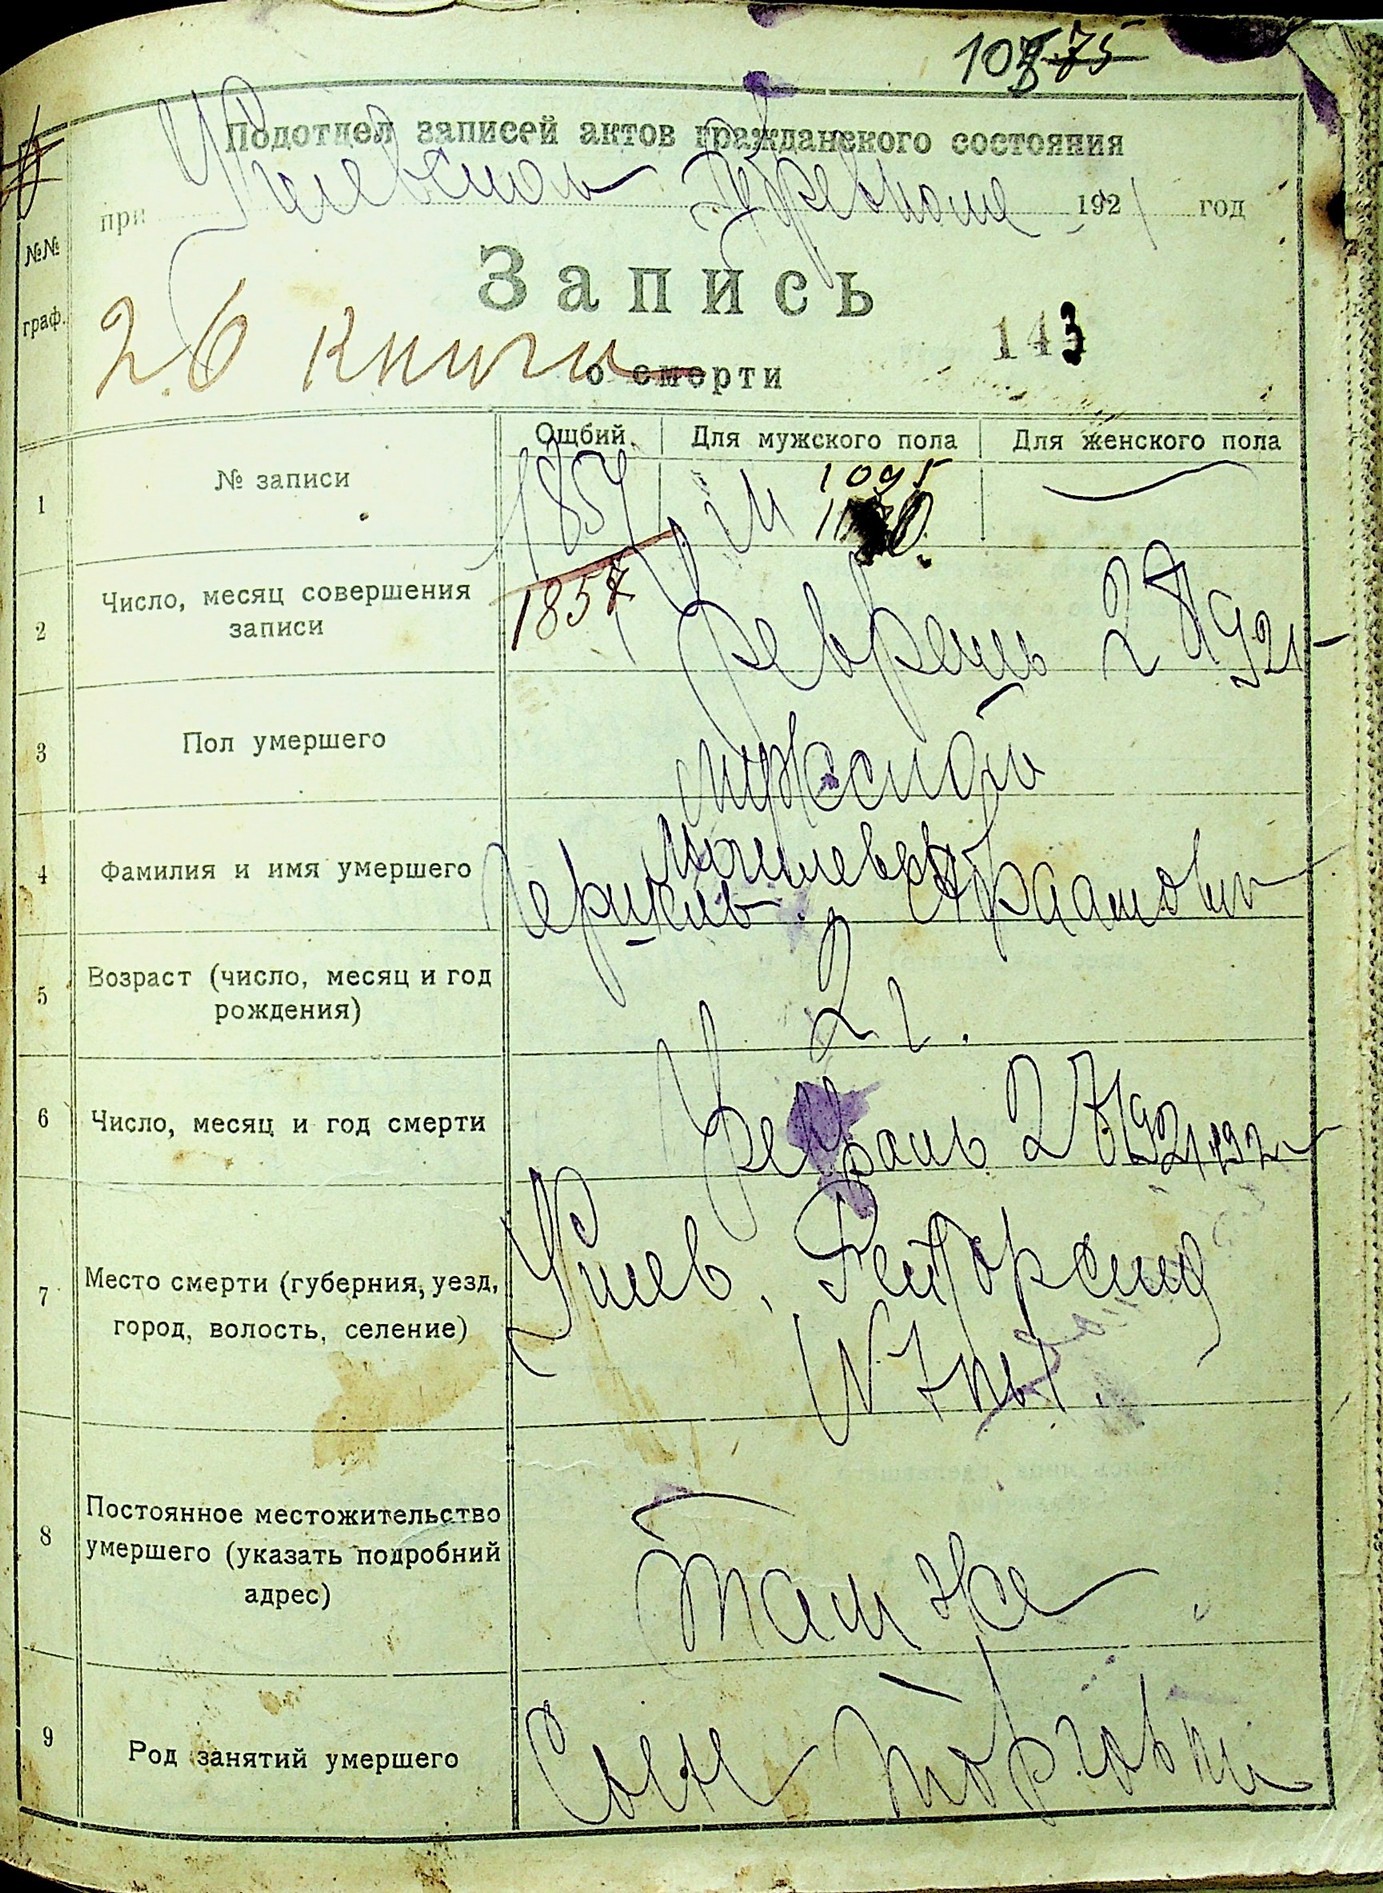 103 75
Подотдел записей актов гражданского состояния
при Киевском Губревкоме 1921 год
№№ граф.
Запись
26 книги
143
о смерти
Ощбий. Для мужского пола Для женского пола
1 № записи 1857 М 1095
1857
2 Число, месяц совершения записи Февраль 28 1921
3 Пол умершего мужской
4 Фамилия и имя умершего
Абрамович
5 Возраст (число, месяц и год рождения) 2 г.
6 Число, месяц и год смерти Февраль 27 1921 192
7 Место смерти (губерния, уезд, город, волость, селение) Киев,
N 7
8 Постоянное местожительство умершего (указать подробний адрес) Там же
9 Род занятий умершего Сын торговки